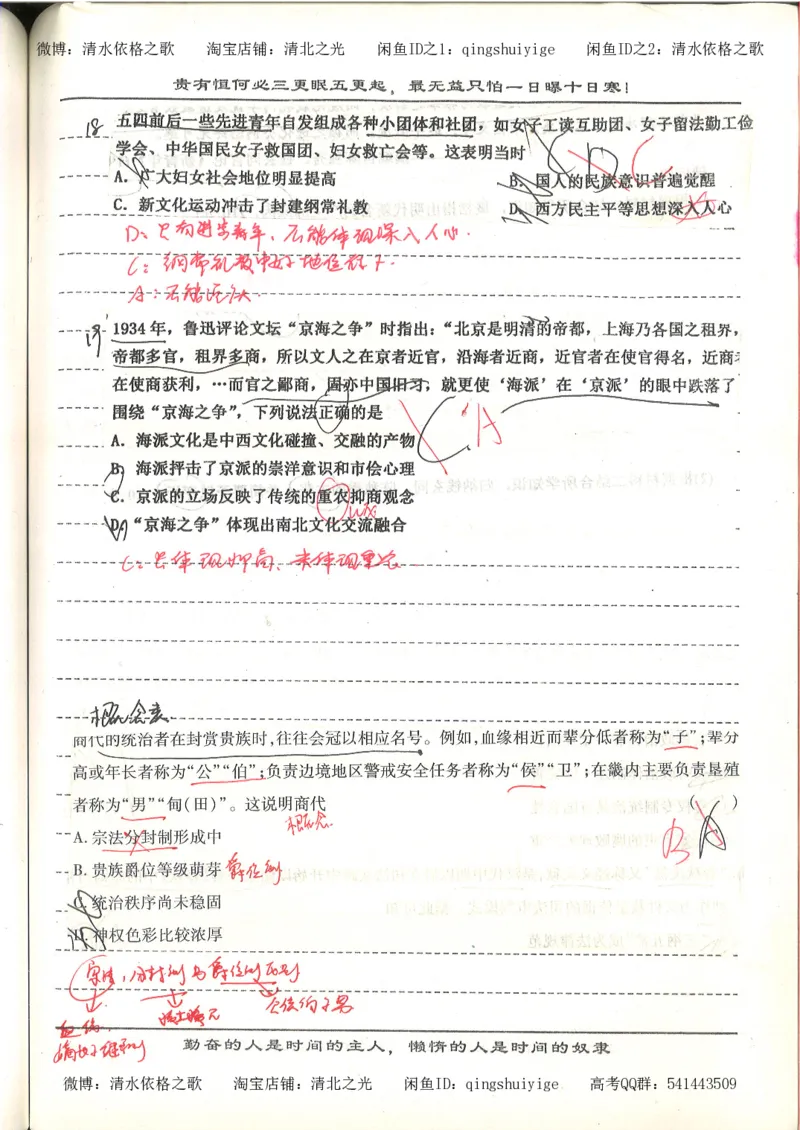 微博：清水依格之歌 淘宝店铺：清北之光 闲鱼ID之1：qingshuiyige 闲鱼ID之2：清水依格之歌
贵有恒何必三更眠五更起，最无益只怕一日曝十日寒！
18 五四前后一些先进青年自发组成各种小团体和社团，如女子工读互助团、女子留法勤工俭
学会、中华国民女子救国团、妇女救亡会等。这表明当时
A．广大妇女社会地位明显提高 B．国人的民族意识普遍觉醒
C．新文化运动冲击了封建纲常礼教 D．西方民主平等思想深入人心
C
D：只有进步青年，不能体现深入人心．
C：纲常礼教中女子地位低下．
19 1934年，鲁迅评论文坛“京海之争”时指出：“北京是明清的帝都，上海乃各国之租界，
帝都多官，租界多商，所以文人之在京者近官，沿海者近商，近官者在使官得名，近商者
在使商获利，…而官之鄙商，固亦中国旧习，就更使‘海派’在‘京派’的眼中跌落了
围绕“京海之争”，下列说法正确的是
C A
A．海派文化是中西文化碰撞、交融的产物
B．海派抨击了京派的崇洋意识和市侩心理
C．京派的立场反映了传统的重农抑商观念
D．“京海之争”体现出南北文化交流融合
C：只体现抑商、未体现重农
概念表
商代的统治者在封赏贵族时，往往会冠以相应名号。例如，血缘相近而辈分低者称为“子”；辈分
高或年长者称为“公”“伯”；负责边境地区警戒安全任务者称为“侯”“卫”；在畿内主要负责垦殖
者称为“男”“甸（田）”。这说明商代 （ ）
概念
A
B
A．宗法分封制形成中
B．贵族爵位等级萌芽 爵位制
C．统治秩序尚未稳固
D．神权色彩比较浓厚
宗法，分封制与爵位制区别
血缘
嫡长子继承制
勤奋的人是时间的主人，懒惰的人是时间的奴隶
微博：清水依格之歌 淘宝店铺：清北之光 闲鱼ID：qingshuiyige 高考QQ群：541443509